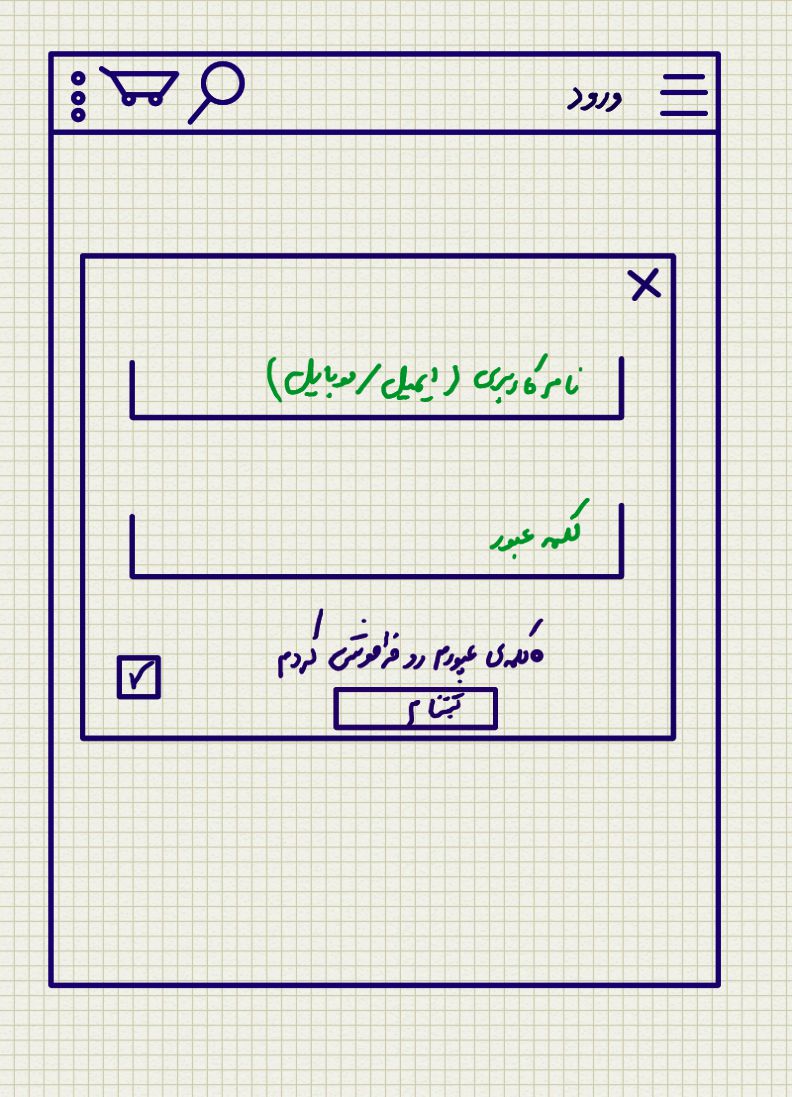 ورود
نام کاربری (ایمیل/موبایل)
کلمه عبور
کلمه‌ی عبورم رو فراموش کردم
ثبتنام